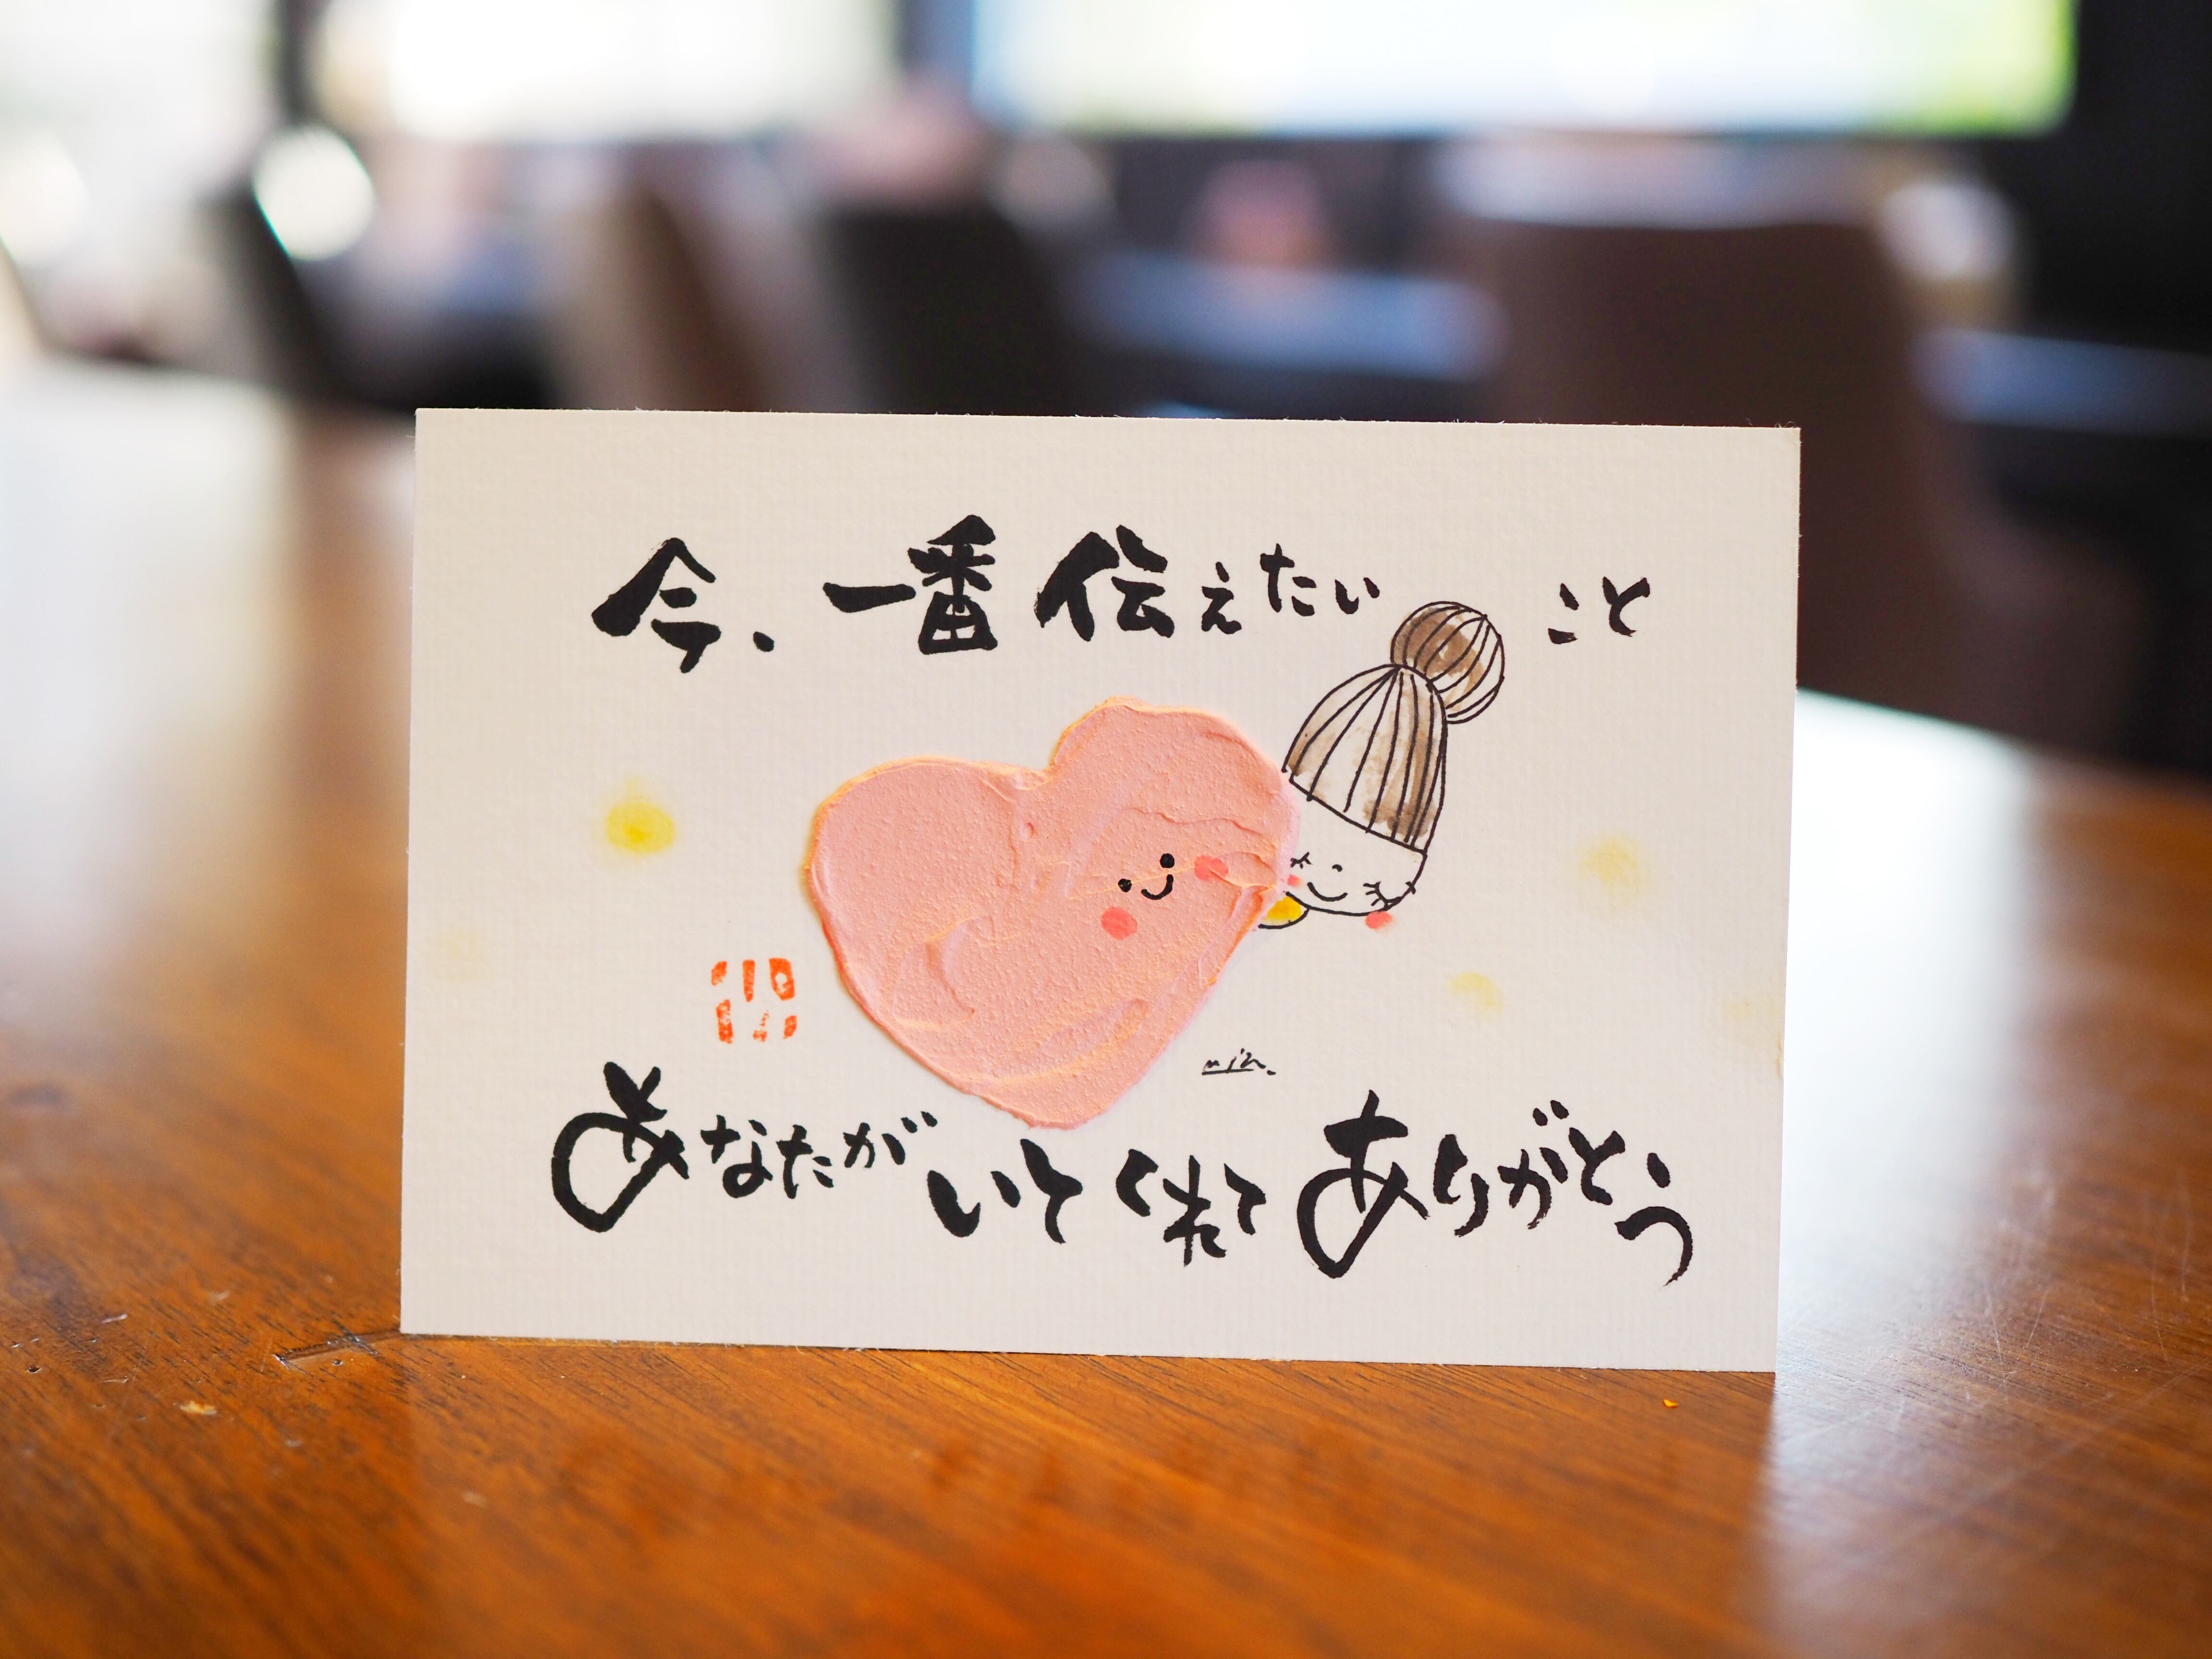 今、一番伝えたいこと
min.
あなたがいてくれてありがとう